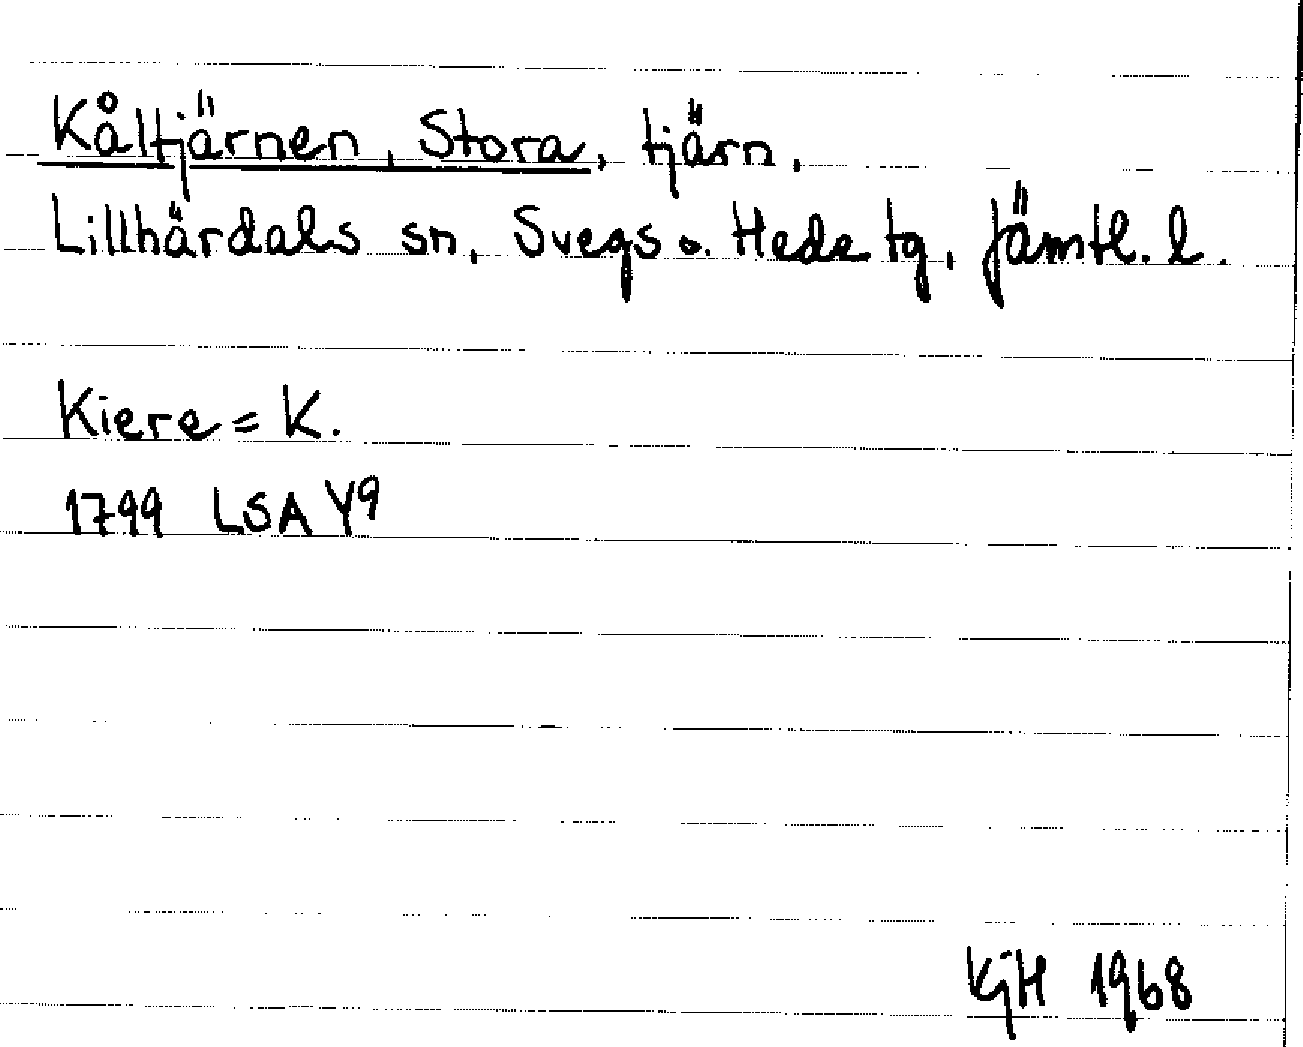 Kåltjärnen, Stora, tjärn,
Lillhärdals sn, Svegs o. Hede tg, Jämtl. l.
Kiere = K.
1799 LSA Y9
KjH 1968